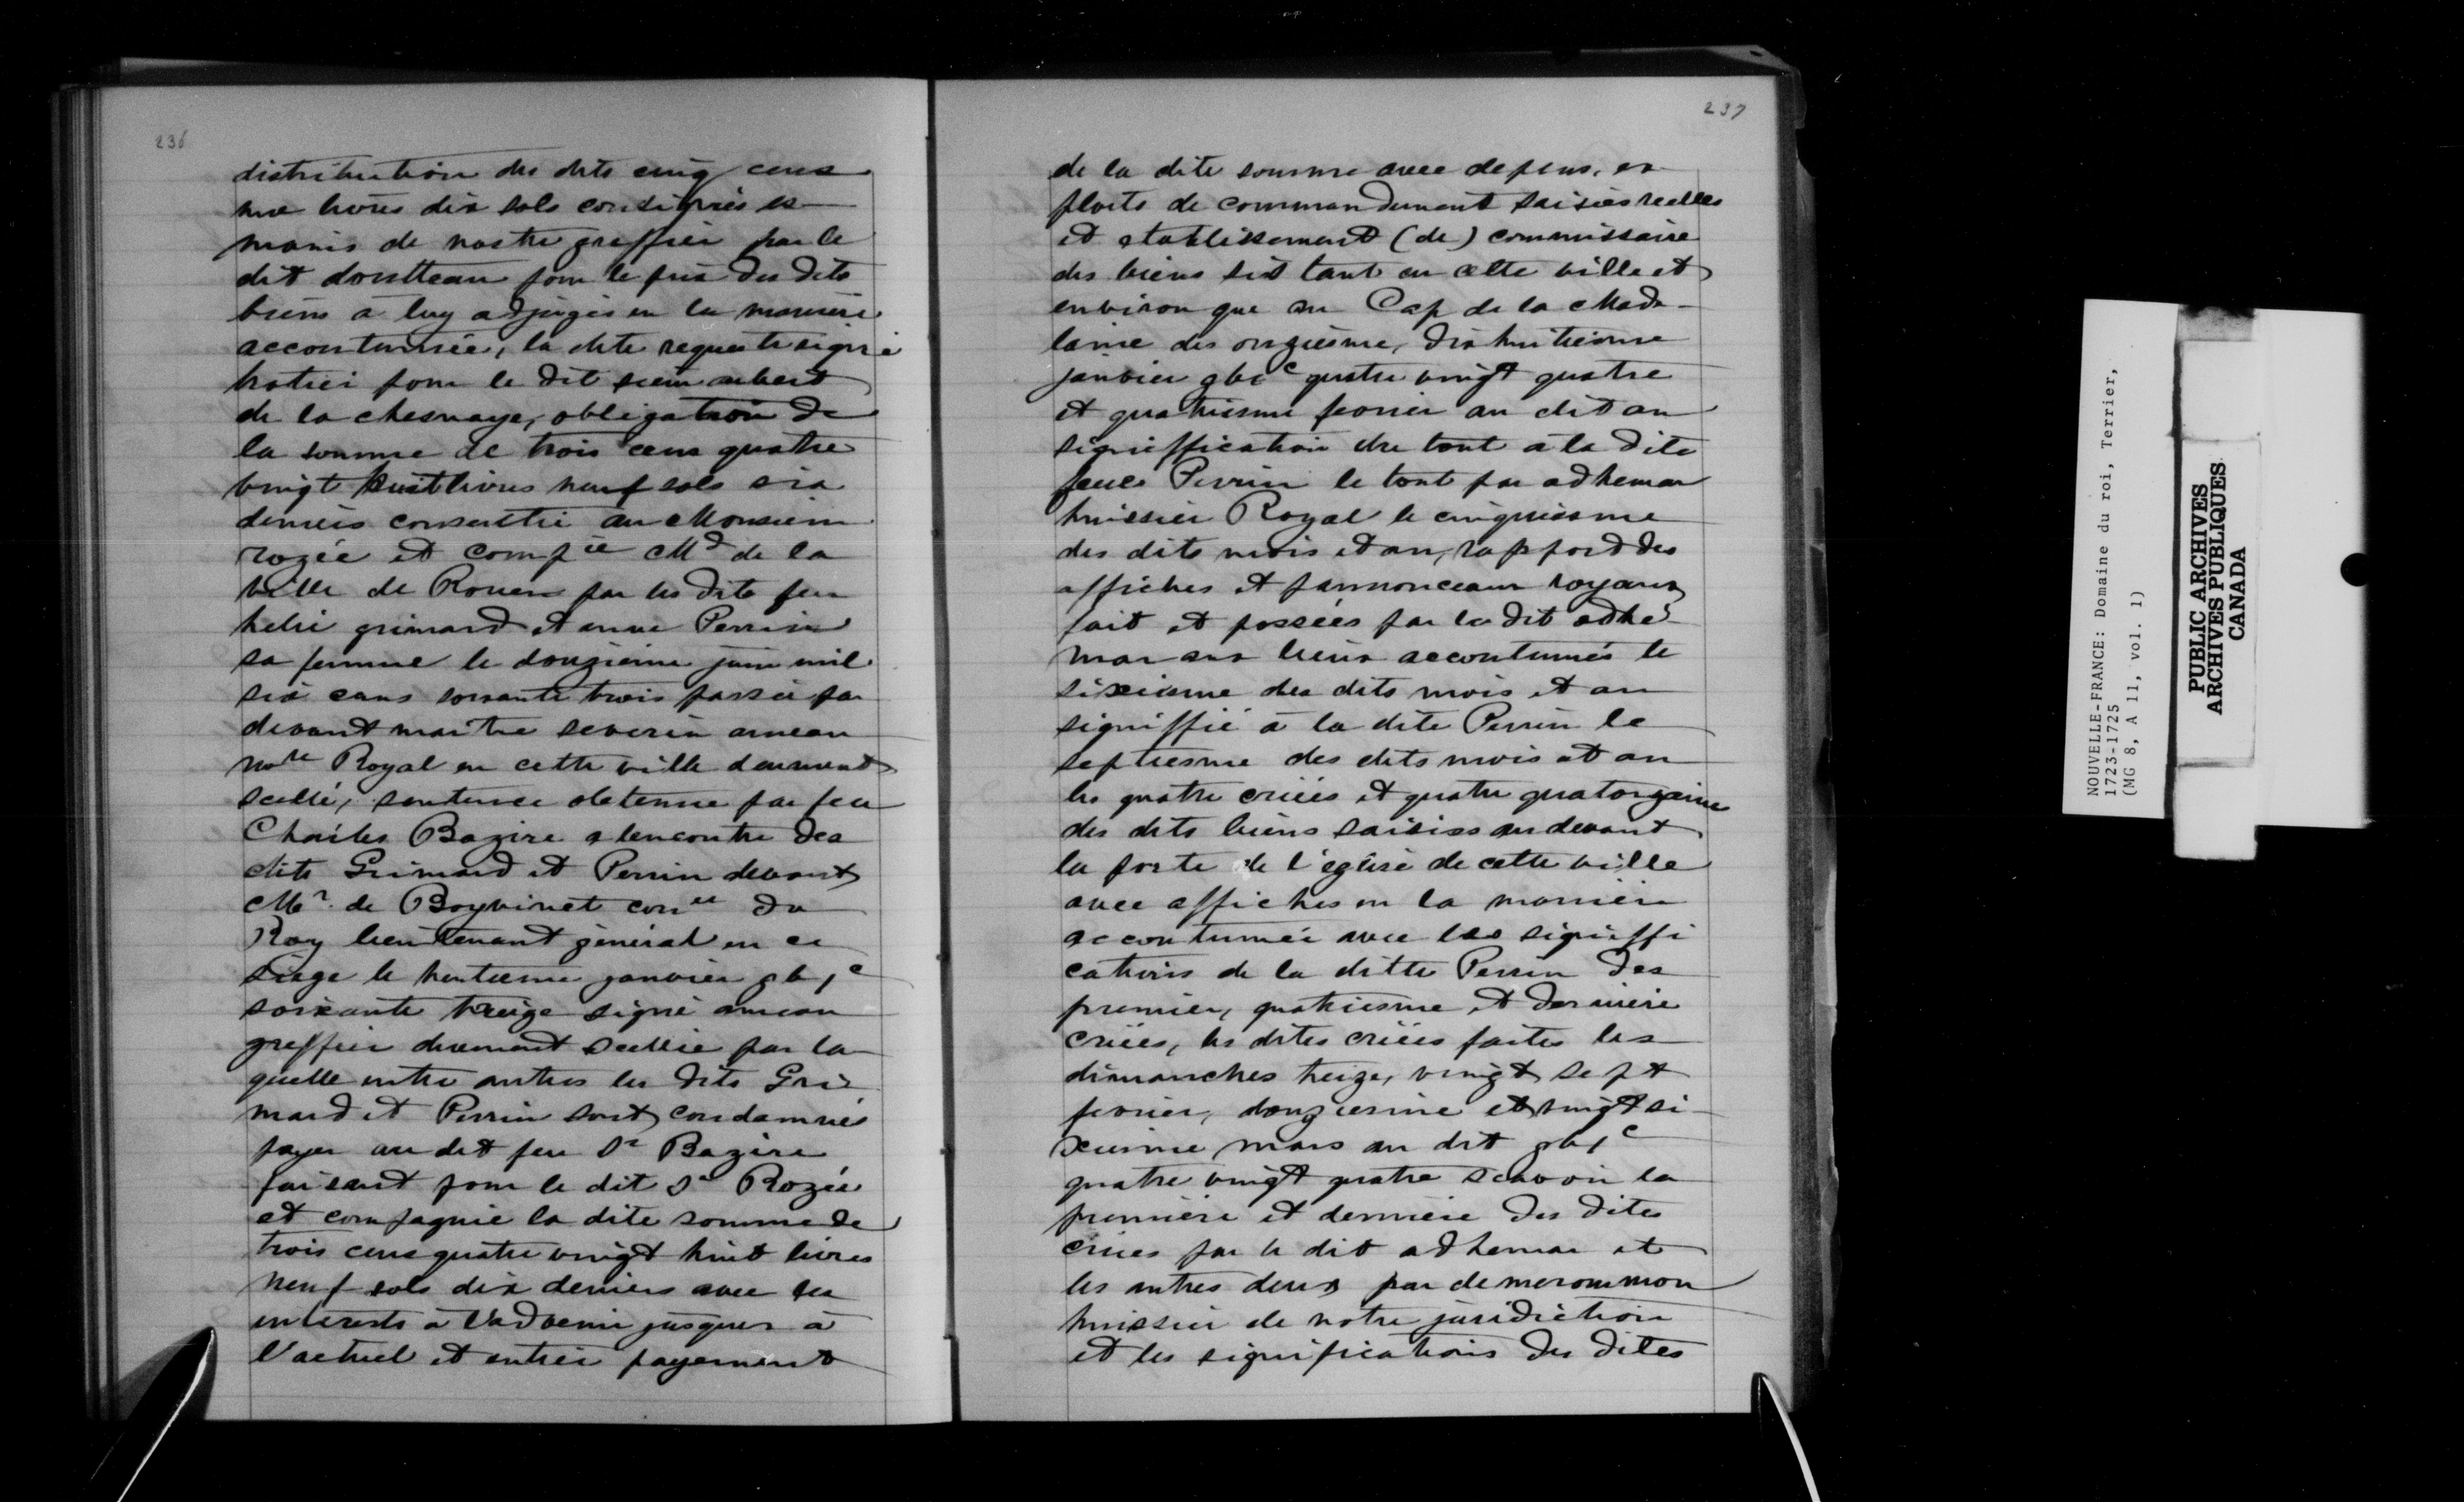 236
distribution des dits cinq cens
une livres dix sols consignés es
mains de nostre greffier par le
dit dousteau pour le prix des dits
biens a luy adjugés en la manière
accoutumée, la dite requete signé
hatiei pour le dit sieur aubert
de la chesnaye, obligation de
la somme de trois cens quatre
vingt huit livres neuf sols six
deniers consentie au Monsieur
rozée et compie Md de la
ville de Rouen par les dits feu
helie grimard et anne Perrin
sa femme le douzieme juin mil
six cens soixante trois passée par
devant maitre severin ameau
nore Royal en cette ville deument
scellé, sentence obtenue par feu
Charles Bazire a lencontre des
dits Grimard et Perrin devant
Mr. de Boyvinet coner du
Roy lieutenant général en ce
siege le huitieme janvier gb1c
soixante treize signé ameau
greffier deument scellée par la
quelle entre autres les dits Gri
mard et Perrin sont condamnés
payer au dit feu Sr Bazire
faisant pour le dit Sr Rozée
et compagnie la dite somme de
trois cens quatre vingt huit livres
neuf sols dix deniers avec les
interests à l'advenir jusques à
l'actuel et entier payement
237
de la dite somme avec depens, ex
ploits de commandement saisies reelles
et etablissement (de) commissaire
des biens sis tant en cette ville et
environ que au Cap de la Made-
laine des onziesme, dix huitiesme
janvier gbic quatre vingt quatre
et quatriesme fevrier au dit an
signiffication du tout à la dite
feue Perrin le tout par adhemar
huissier Royal le cinquiesme
des dits mois et an, rapport des
affiches et pannonceaux royaux
fait et possées par le dit adhé-
mar aux lieux accoutumés le
sixieme des dits mois et an
signiffié à la dite Perrin le
septiesme des dits mois et an
les quatre criées et quatre quatorzaine
des dits biens saisies au devant
la porte de l'eglise de cette ville
avec affiches en la manière
accoutumée avec les signiffi
cations de la ditte Perrin des
premier, quatriesme et dernière
criées, les dites criées faites les
dimanches treize, vingt sept
fevrier, douziesme et vingt si-
xieme mars au dit gb1c
quatre vingt quatre scavoir la
premiere et derniere des dites
criées par le dit adhemar et
les autres deux par demeromont
huissier de notre juridiction
et les significations des dites
NOUVELLE-FRANCE: Domaine du roi, Terrier,
1723-1725
(MG 8, A 11, vol. 1)
PUBLIC ARCHIVES
ARCHIVES PUBLIQUES
CANADA